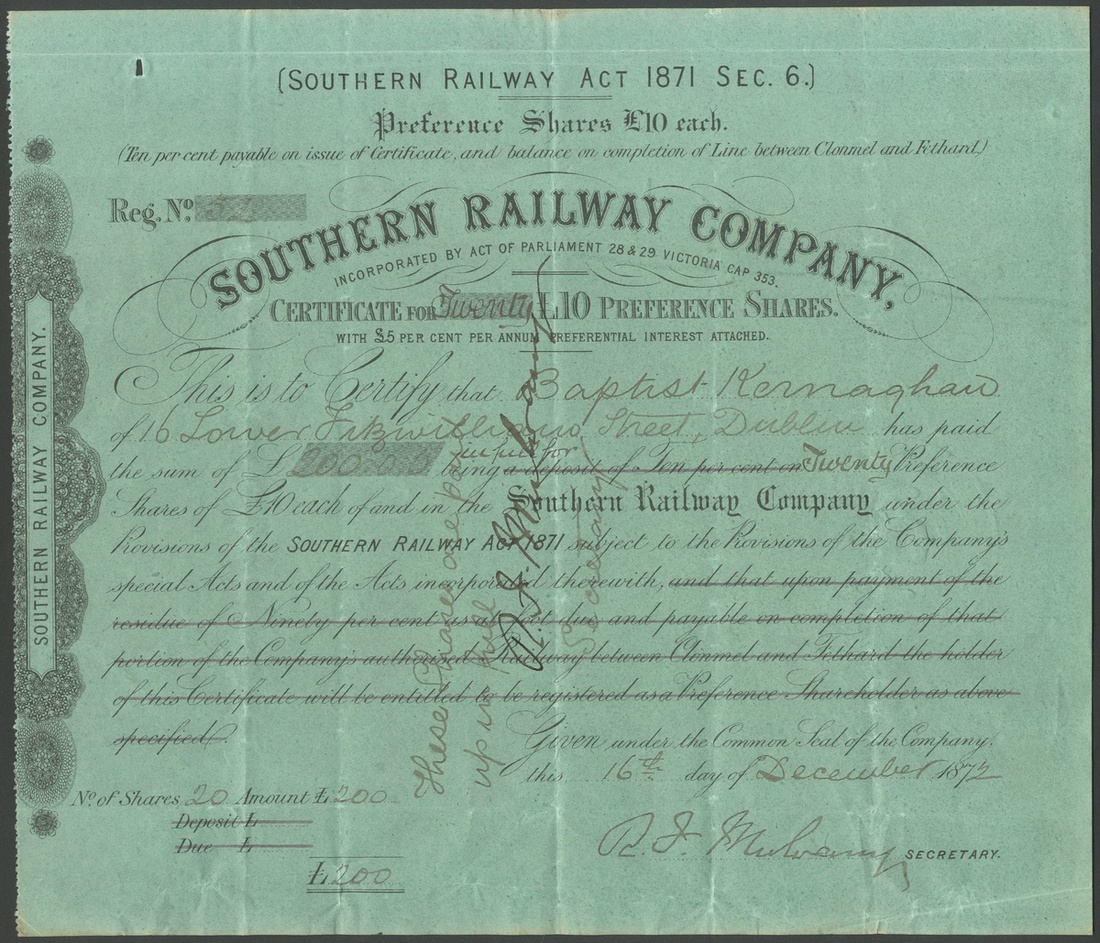 (SOUTHERN RAILWAY ACT 1871 SEC. 6.)
Preference Shares £10 each.
(Ten per cent payable on issue of Certificate, and balance on completion of Line between Clonmel and Fethard.)
Reg. No.
SOUTHERN RAILWAY COMPANY,
INCORPORATED BY ACT OF PARLIAMENT 28 & 29 VICTORIA CAP 353.
CERTIFICATE FOR Twenty £10 PREFERENCE SHARES.
WITH £5 PER CENT PER ANNUM PREFERENTIAL INTEREST ATTACHED.
This is to Certify that Baptist Kernaghan
of 16 Lower Fitzwilliam Street, Dublin has paid
in full for
the sum of £ 200.0.0 being a deposit of Ten per cent on Twenty Preference
Shares of £10 each of and in the Southern Railway Company under the
Provisions of the SOUTHERN RAILWAY ACT 1871 subject to the Provisions of the Company's
special Acts and of the Acts incorporated therewith, and that upon payment of the
residue of Ninety per cent when due and payable on completion of that
portion of the Company's authorised Railway between Clonmel and Fethard the holder
of this Certificate will be entitled to be registered as a Preference Shareholder as above
specified.
Given under the Common Seal of the Company.
this 16th day of December 1872
No. of Shares 20 Amount £200
Deposit £
Due £
£200
R. F. Mulvany SECRETARY.
These Shares are paid
up in full
R. F. Mulvany
Secretary
SOUTHERN RAILWAY COMPANY.